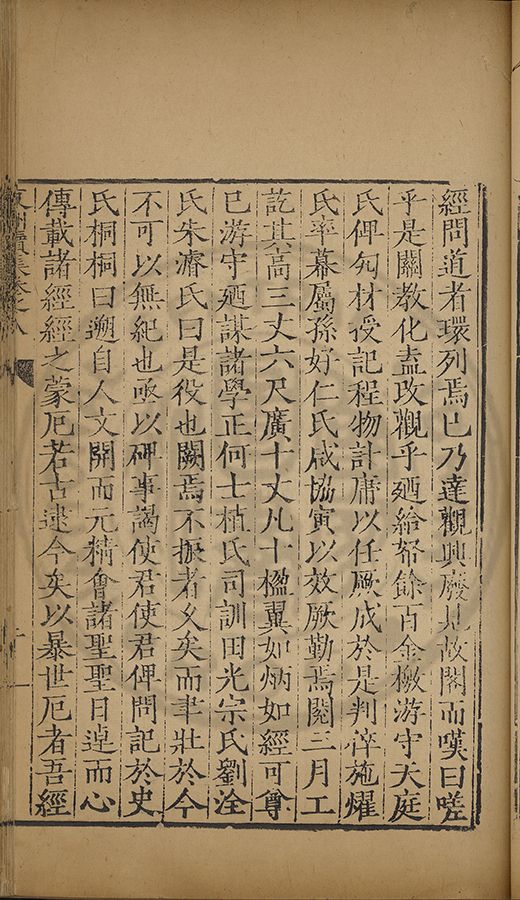 經問道者環列焉已乃達觀興廢見故閣而嘆曰嗟
乎是關教化盍改觀乎廼給帑餘百金檄游守天庭
氏俾匃材受記程物計庸以任厥成於是判淬施燿
氏率幕屬孫好仁氏咸協寅以效厥勤焉閱三月工
訖其高三丈六尺廣十丈凡十楹翼如炳如經可尊
已游守廼謀諸學正何士植氏司訓田光宗氏劉洤
氏朱濬氏曰是役也闕焉不振者久矣而聿壯於今
不可以無紀也亟以碑事謁使君使君俾問記於史
氏桐桐曰遡自人文開而元精會諸聖聖日逴而心
傳載諸經經之蒙厄若古逮今矣以暴世厄者吾經
集卷之八